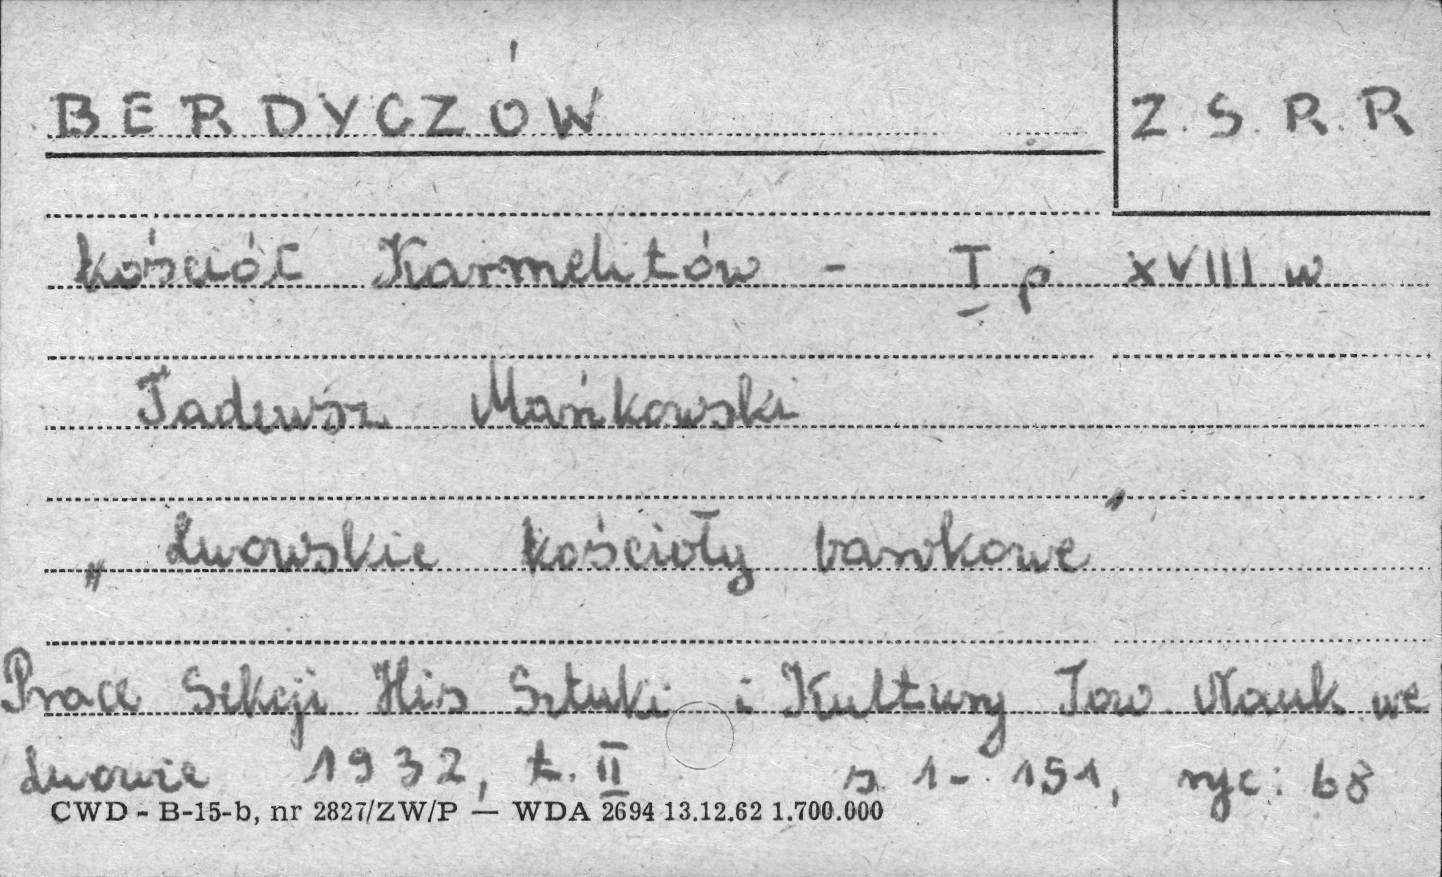 BERDYCZÓW
Z.S.R.R
kościół Karmelitów - I p XVIII w
Tadeusz Mańkowski
„Lwowskie kościoły barokowe"
Prace Sekcji His Sztuki i Kultury Tow Nauk we
Lwowie 1932, t. II s. 1-151, ryc: 68
CWD - B-15-b, nr 2827/ZW/P — WDA 2694 13.12.62 1.700.000